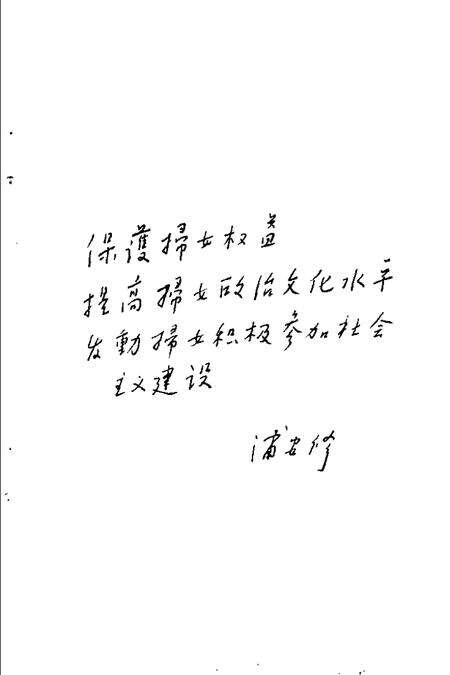 保護婦女权益
提高婦女政治文化水平
发動婦女积极参加社会
主义建设
浦安修